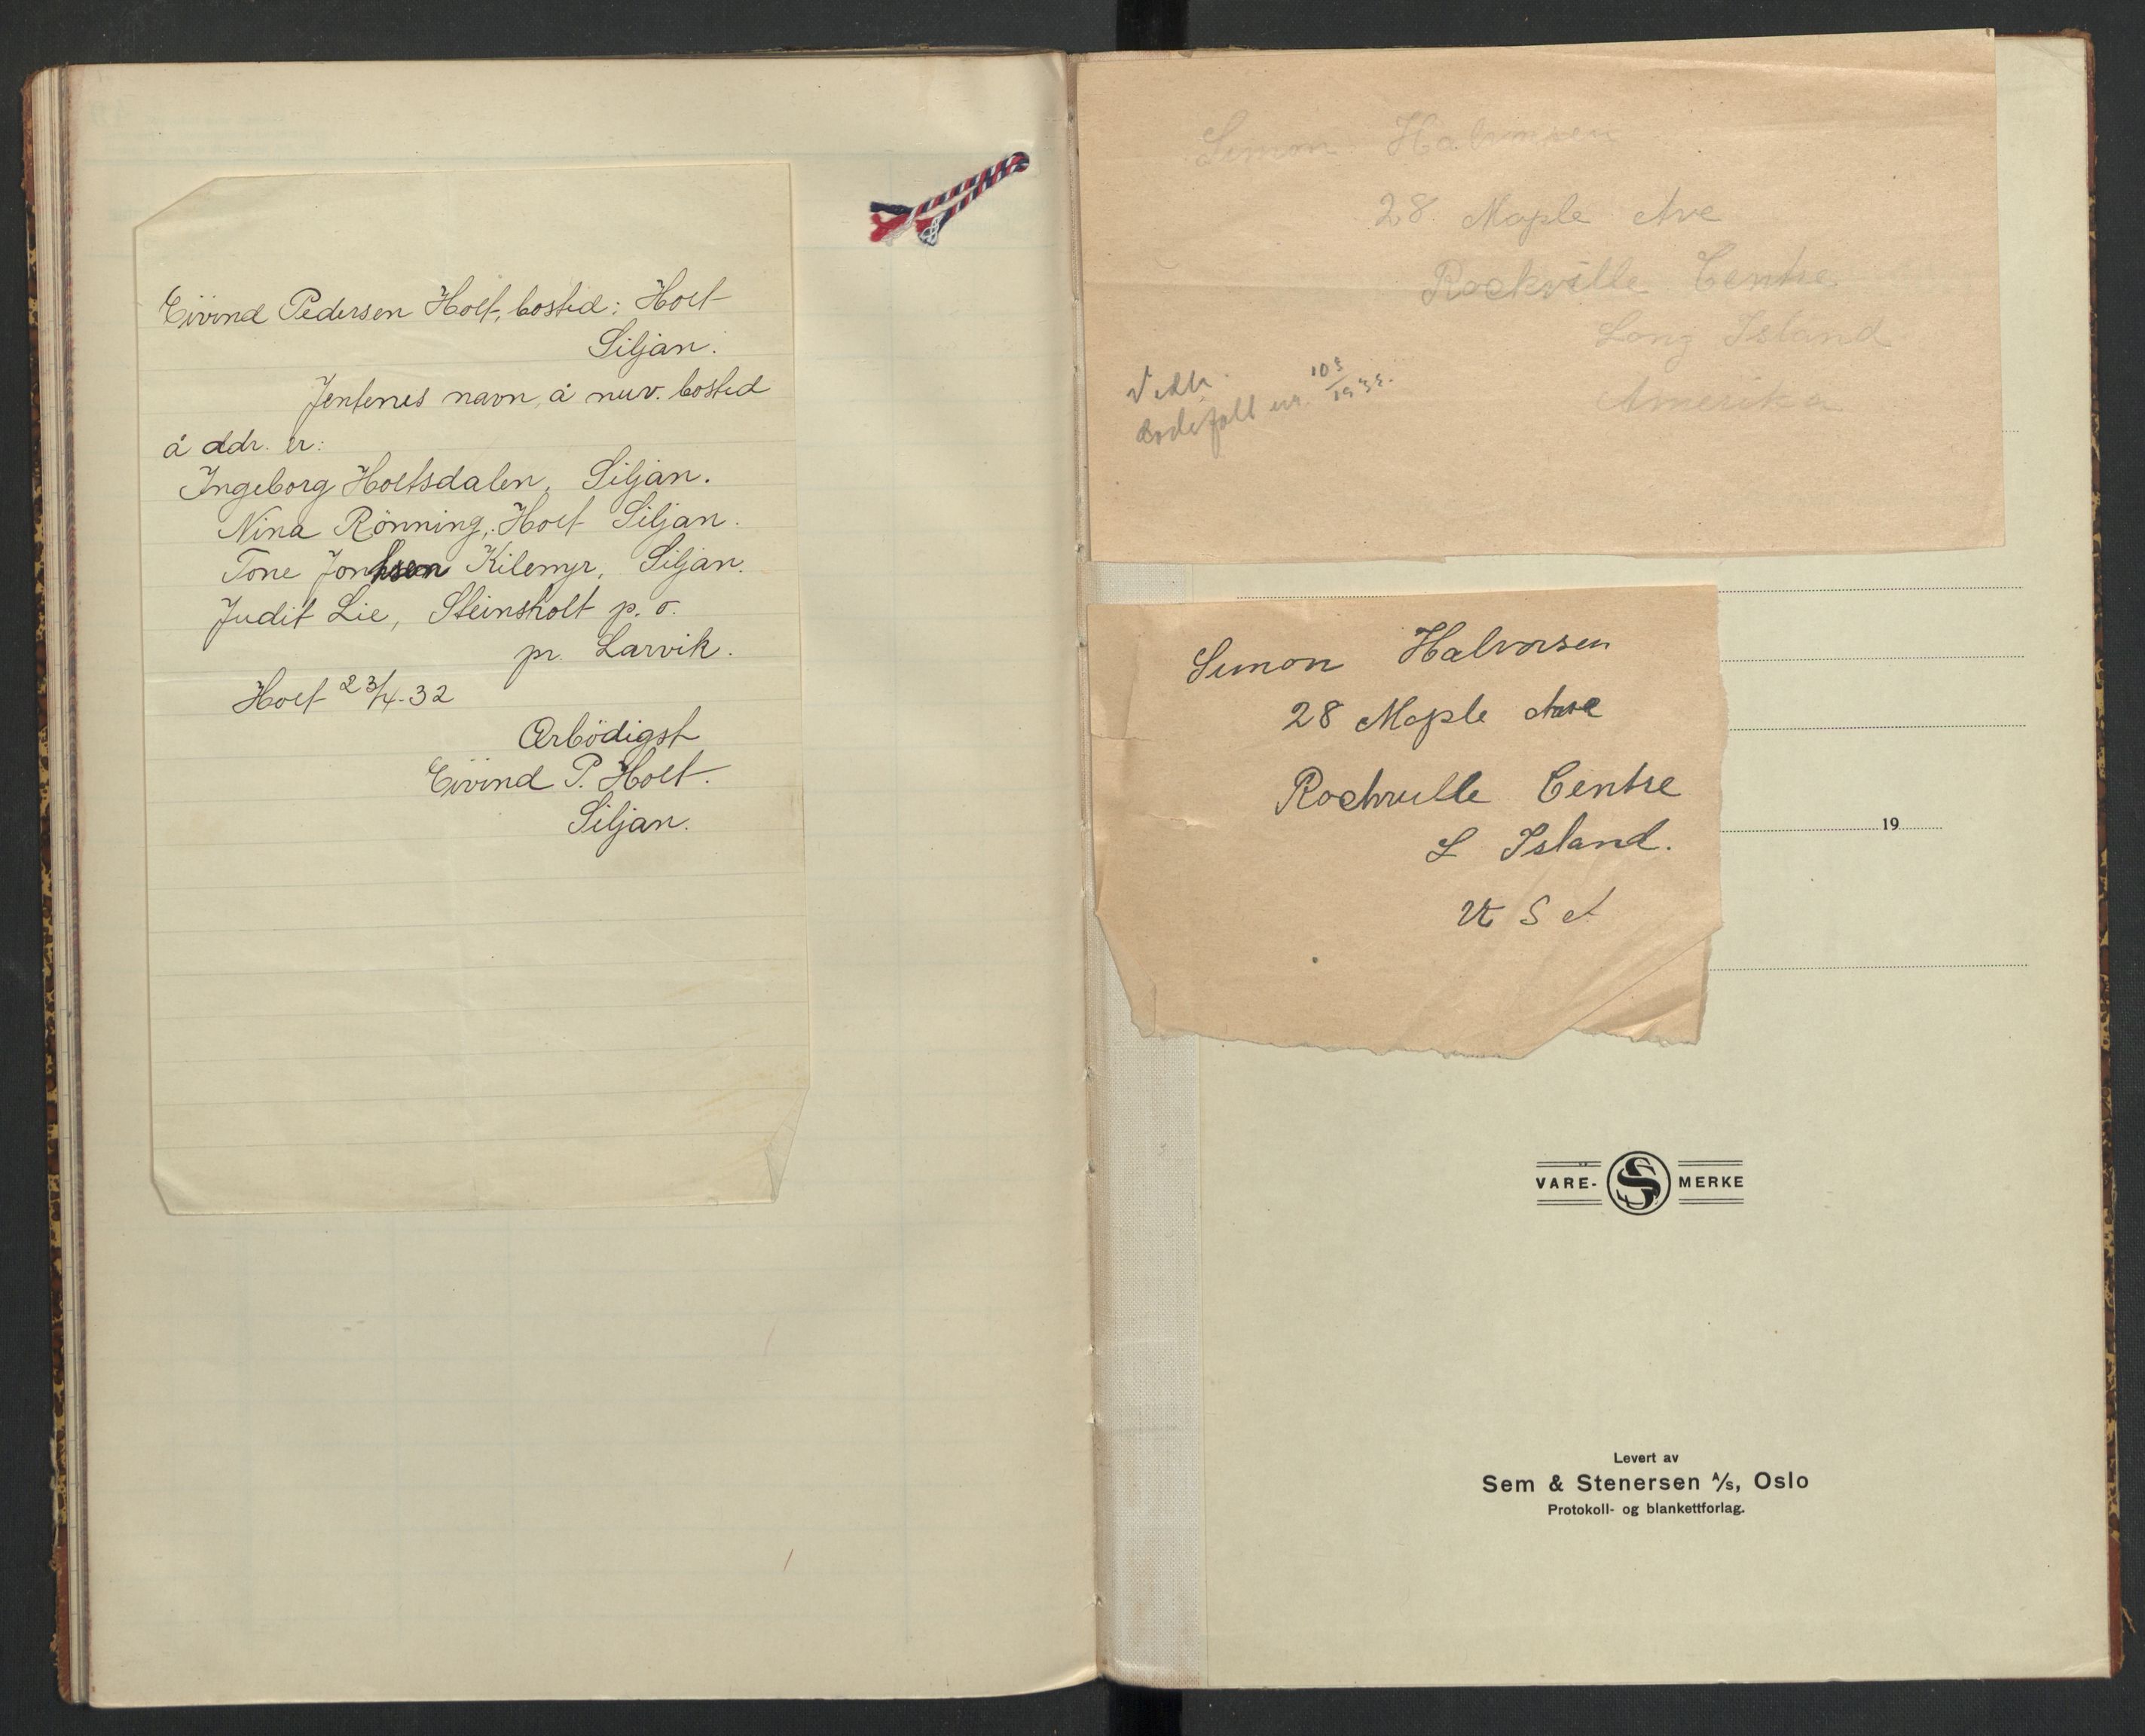 Eivind Pedersen Holt, bosted: Holt
Siljan.
Jentenes navn å nuv. bosted
å ddr. er:
Ingeborg Holtsdalen, Siljan.
Nina Rönning, Holt Siljan.
Tone Kilemyr, Siljan.
Judit Lie, Steinsholt p. o.
pr. Larvik.
Holt 23/4-32
Ærbödigst
Eivind P. Holt.
Siljan.
Simon Halvorsen
28. Maple Ave
Rockville Centre
Long Island
Amerika
Vedk.
dødsfall nr. 103/1933.
Simon Halvorsen
28 Maple Ave
Rockville Centre
L Island.
U S A
19
VARE- S MERKE
Levert av
Sem & Stenersen A/S, Oslo
Protokoll- og blankettforlag.